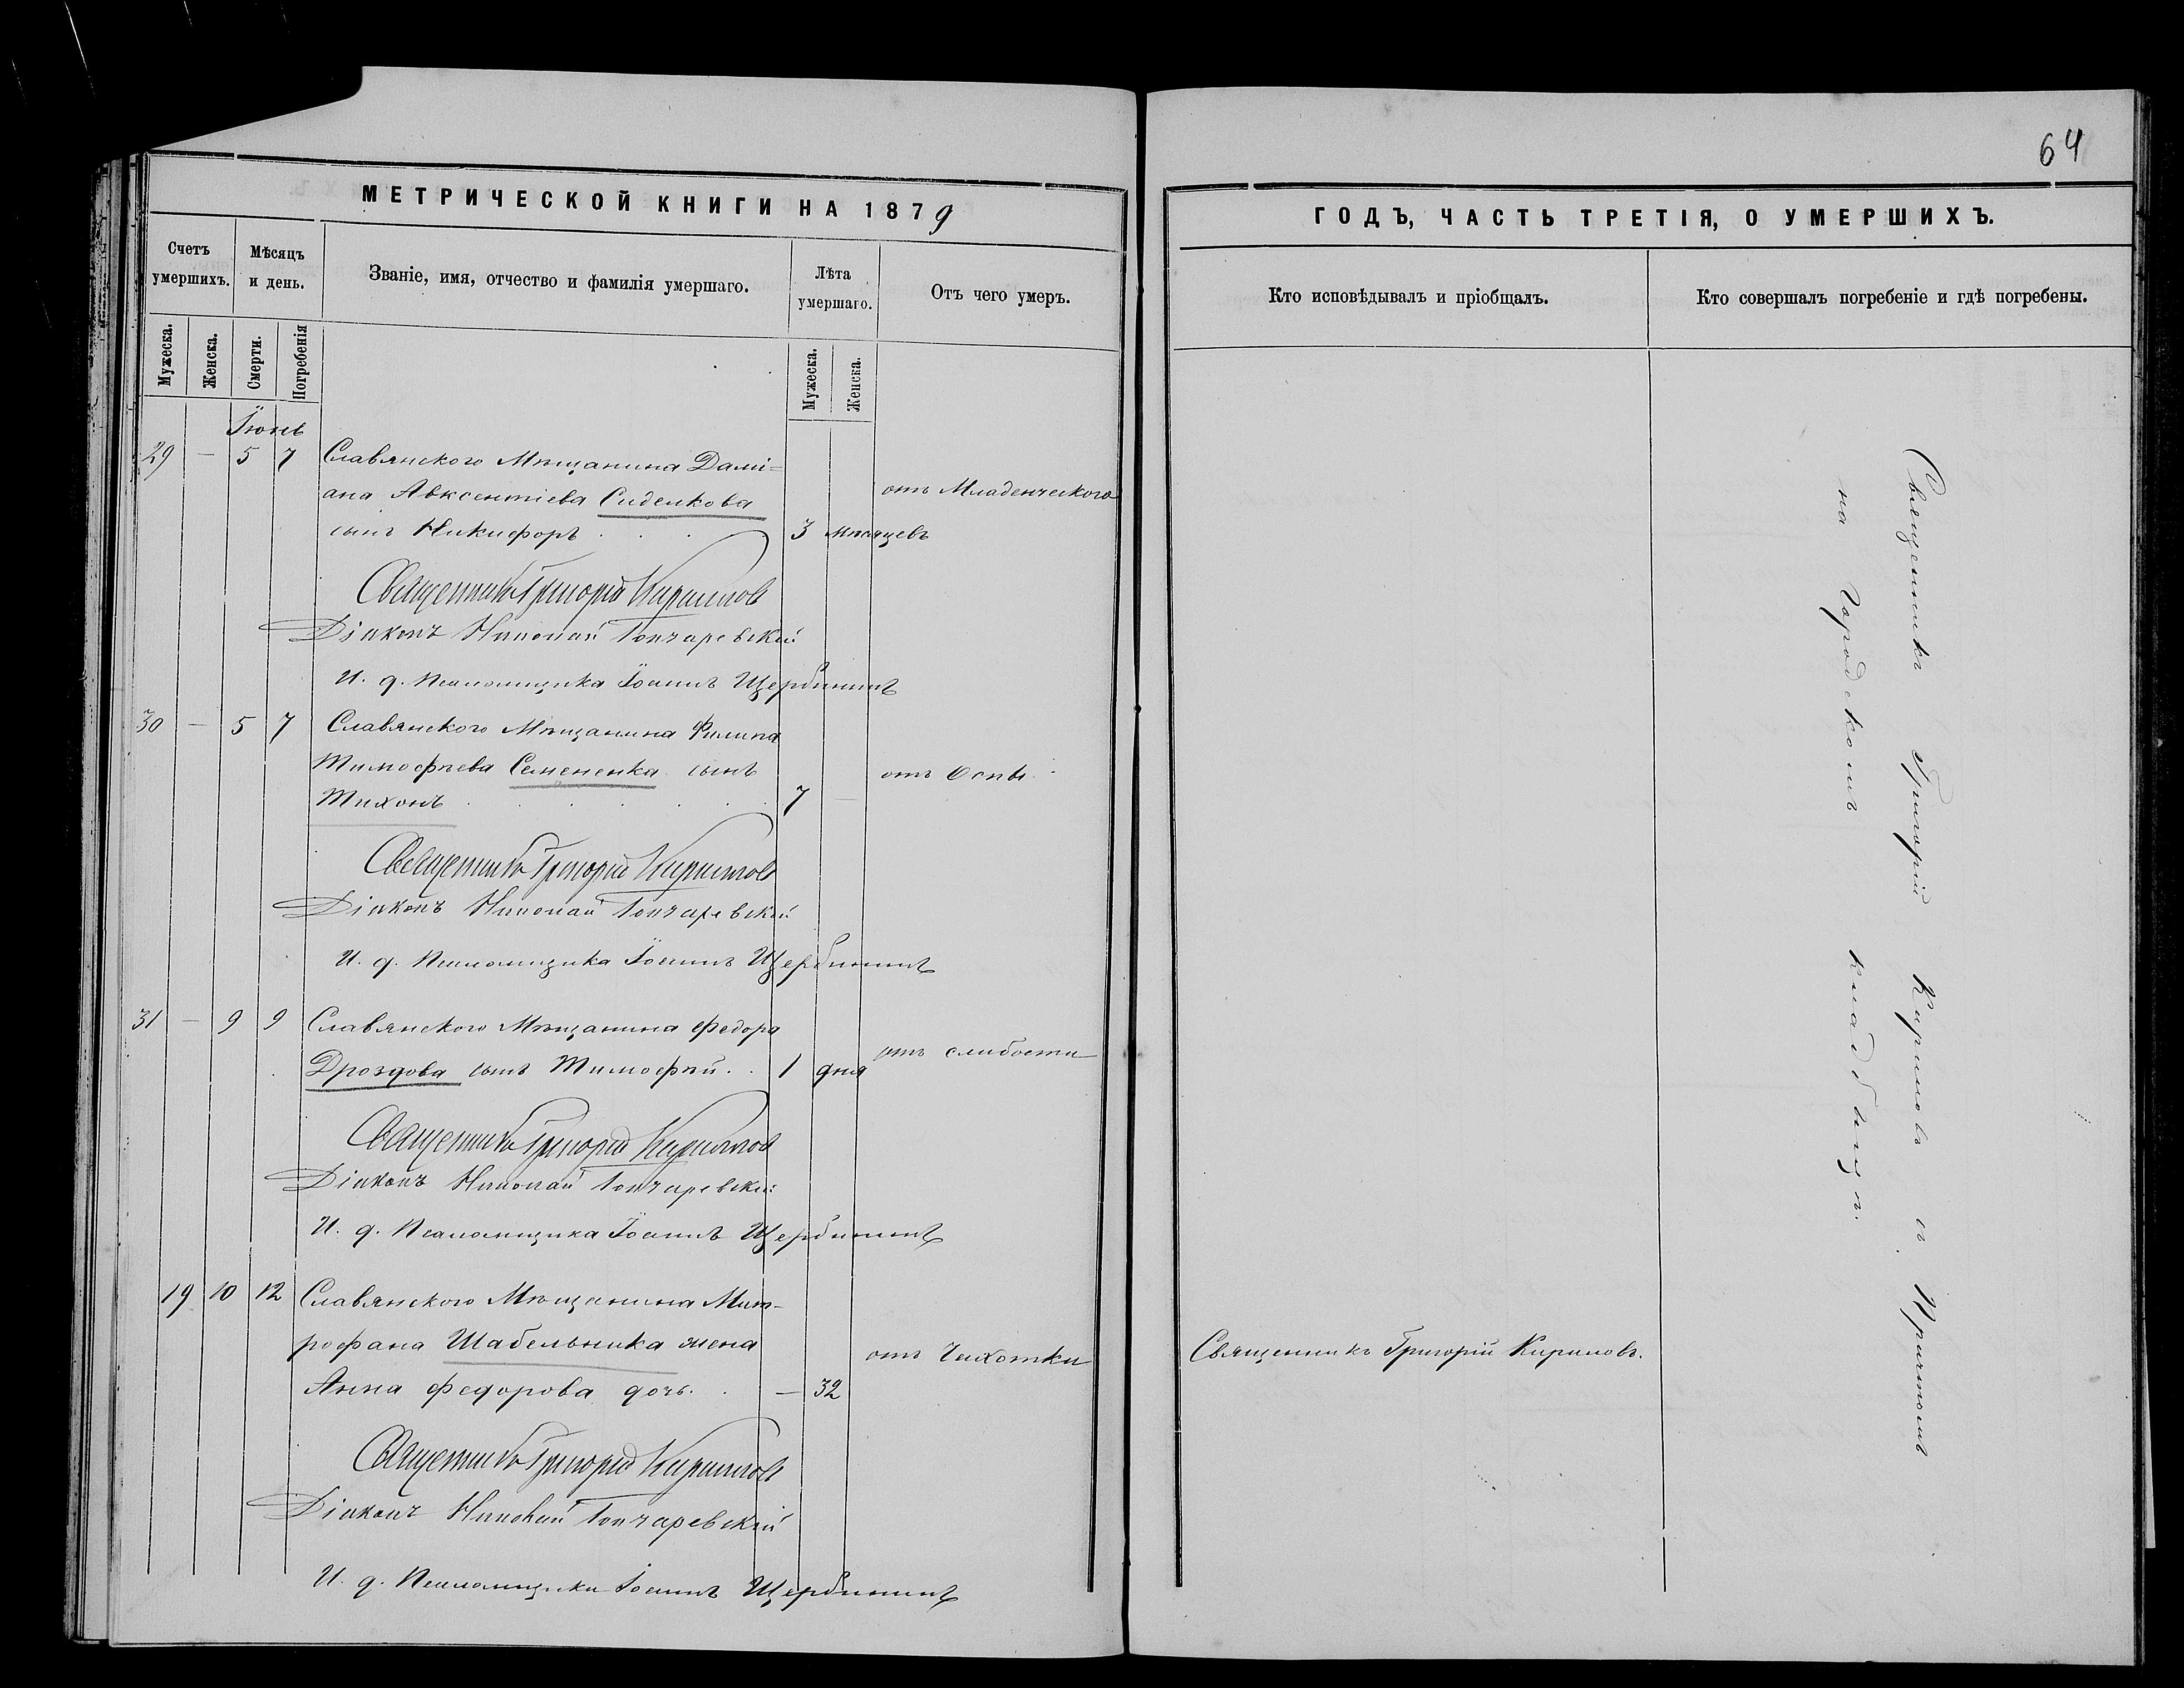 64
МЕТРИЧЕСКОЙ КНИГИ НА 1879
ГОДЪ, ЧАСТЬ ТРЕТІЯ, О УМЕРШИХЪ.
Счетъ умершихъ.
Мѣсяцъ и день.
Званіе, имя, отчество и фамилія умершаго.
Лѣта умершаго.
Отъ чего умеръ.
Кто исповѣдывалъ и пріобщалъ.
Кто совершалъ погребеніе и гдѣ погребены.
Мужеска.
Женска.
Смерти.
Погребенія
Мужеска.
Женска.
Іюнь
29 — 5 7 Славянского Мѣщанина Дамі=
ана Авксентіева Сиденкова
отъ Младенческого
сынъ Никифоръ . . . 3 мѣсяцевъ
Священникъ Григорій Кириловъ
Діаконъ Николай Гончаревскій
И. д. Псаломщика Іоаннъ Щербининъ
30 — 5 7 Славянского Мѣщанина Филипа
Тимофѣева Семененка сынъ
отъ Оспы
Тихонъ . . . . . 7 —
Священникъ Григорій Кириловъ
Діаконъ Николай Гончаревскій
И. д. Псаломщика Іоаннъ Щербининъ
31 — 9 9 Славянского Мѣщанина Федора
отъ слабости
Дроздова сынъ Тимофѣй . . 1 дня
Священникъ Григорій Кириловъ
Діаконъ Николай Гончаревскій
И. д. Псаломщика Іоаннъ Щербининъ
19 10 12 Славянского Мѣщанина Мит-
рофана Шабельника жена
отъ Чахотки
Священникъ Григорій Кириловъ.
Анна Федорова дочь. . — 32
Священникъ Григорій Кириловъ
Діаконъ Николай Гончаревскій
И. д. Псаломщика Іоаннъ Щербининъ
Священникъ Григорій Кириловъ съ Причтомъ
на Городскомъ кладбищѣ.